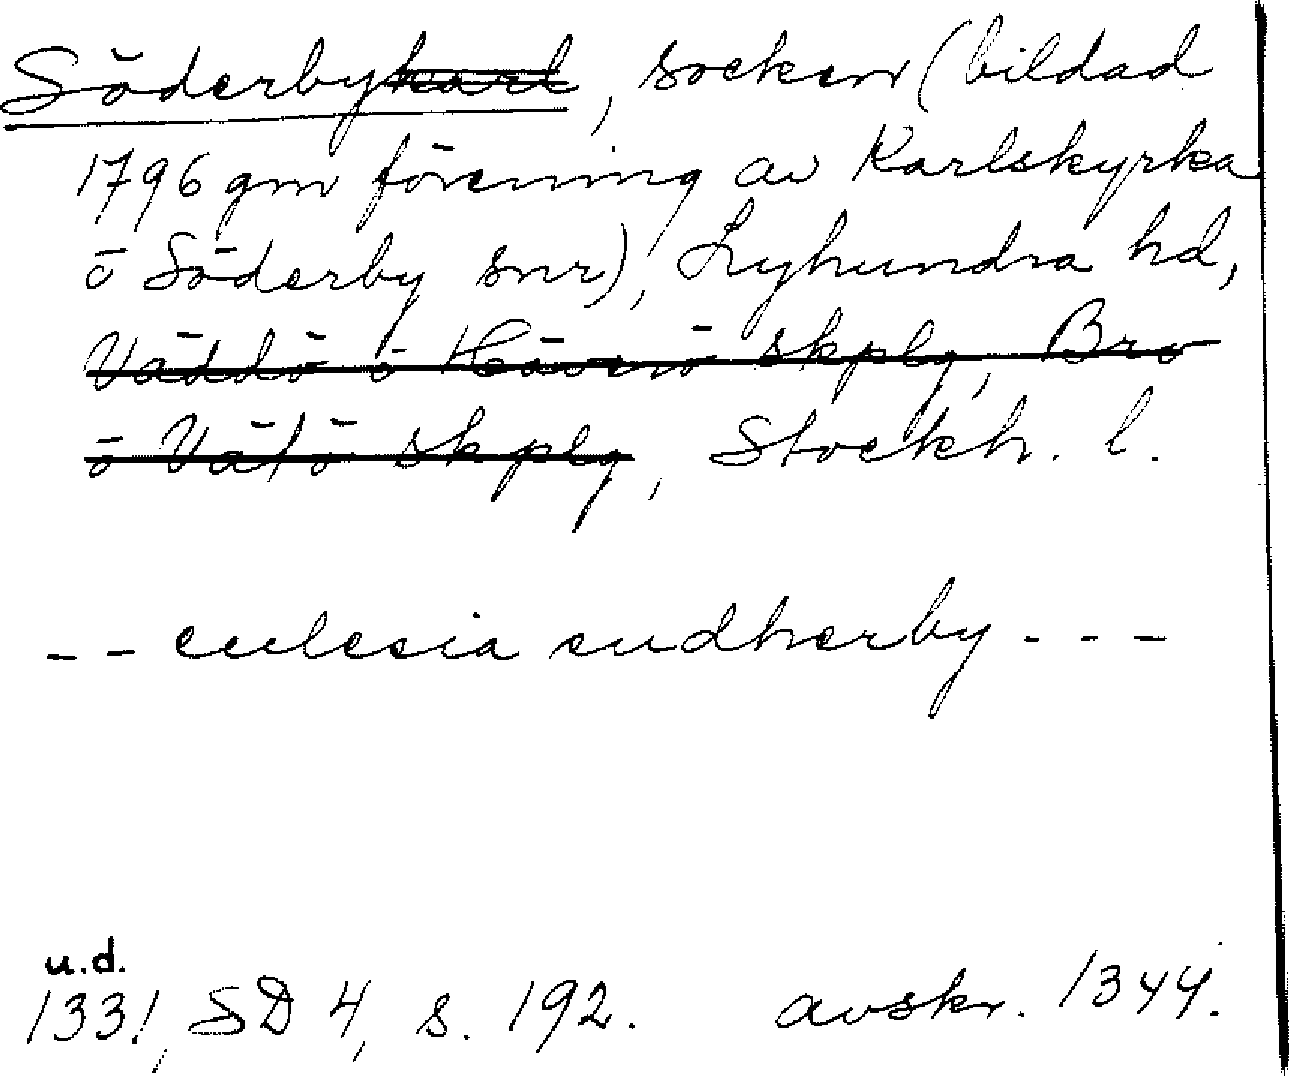 Söderbykarl, socken (bildad
1796 gm förening av Karlskyrka
o Söderby snr), Lyhundra hd,
Väddö o Häverö skplg, Bro
o Vätö skplg, Stockh. l.
-- ecclesia sudherby ---
u.d.
1331, SD 4, s. 192. avskr. 1344.